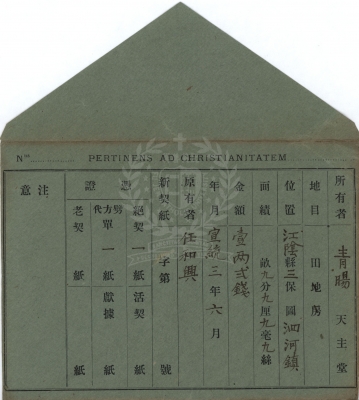 Nº
PERTINENS AD CHRISTIANITATEM
所有者 青暘 天主堂
地目 田地房
位置 江陰縣三保圖泗河鎮
面績 畝九分九厘九毫九絲
金額 壹两弍錢
年月 宣統三年六月
原有者 任和興
新契紙 字第 號
憑證
絕契 一紙 活契 紙
代方單 一紙 獻據 紙
老契 紙 紙
注意